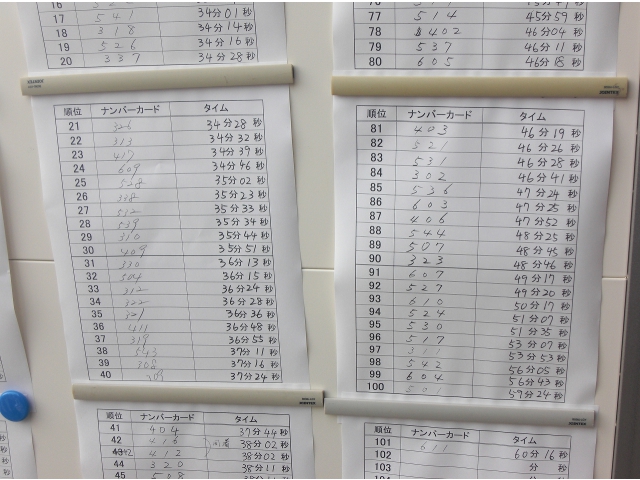 17 541 34分01秒
18 318 34分14秒
19 526 34分16秒
20 337 34分28秒
順位 ナンバーカード タイム
21 326 34分28秒
22 313 34分32秒
23 417 34分39秒
24 609 34分46秒
25 528 35分02秒
26 338 35分23秒
27 512 35分33秒
28 539 35分34秒
29 310 35分44秒
30 409 35分51秒
31 330 36分13秒
32 504 36分15秒
33 312 36分24秒
34 322 36分28秒
35 321 36分36秒
36 411 36分48秒
37 319 36分55秒
38 543 37分11秒
39 308 37分16秒
40 37分24秒
順位 ナンバーカード タイム
41 404 37分44秒
42 416 同着 38分02秒
42 412 38分02秒
44 320 38分11秒
45 508
77 514 45分59秒
78 402 46分04秒
79 537 46分11秒
80 605 46分18秒
順位 ナンバーカード タイム
81 403 46分19秒
82 521 46分26秒
83 531 46分28秒
84 302 46分41秒
85 536 47分24秒
86 603 47分25秒
87 406 47分52秒
88 544 48分25秒
89 507 48分45秒
90 323 48分46秒
91 607 49分17秒
92 527 49分20秒
93 610 50分17秒
94 524 51分07秒
95 530 51分35秒
96 517 53分07秒
97 311 53分53秒
98 542 56分05秒
99 604 56分43秒
100 501 59分24秒
順位 ナンバーカード タイム
101 611 60分16秒
102 分 秒
103 分 秒
104